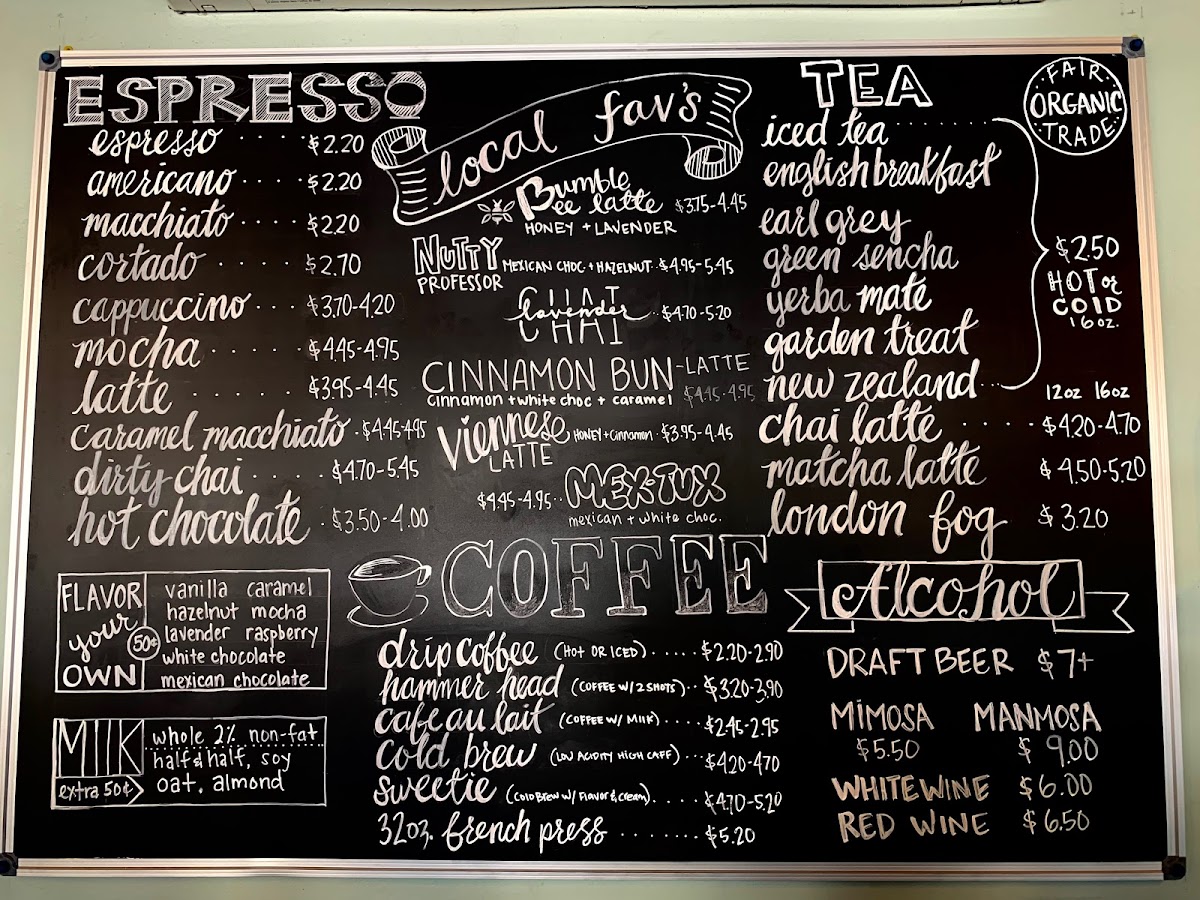 ESPRESSO
espresso ···· $2.20
americano ···· $2.20
macchiato ··· $2.20
cortado ····· $2.70
cappuccino ··· $3.70-4.20
mocha ····· $4.45-4.95
latte ······ $3.95-4.45
caramel macchiato · $4.45-4.95
dirty chai ····· $4.70-5.45
hot chocolate · $3.50-4.00
FLAVOR your OWN
50¢
vanilla caramel
hazelnut mocha
lavender raspberry
white chocolate
mexican chocolate
MILK
extra 50¢
whole 2% non-fat
half & half, soy
oat. almond
local fav's
Bumble
Bee latte $3.75-4.45
HONEY + LAVENDER
NUTTY
PROFESSOR MEXICAN CHOC. + HAZELNUT ·· $4.95-5.45
lavender ·· $4.70-5.20
CHAI
CINNAMON BUN -LATTE
cinnamon + white choc + caramel $4.45-4.95
Viennese HONEY + cinnamon · $3.95-4.45
LATTE
$4.45-4.95 ·· MEX-TUX
mexican + white choc.
COFFEE
drip coffee (HOT OR ICED) ····· $2.20-2.90
hammer head (COFFEE W/ 2 SHOTS) ·· $3.20-3.90
cafe au lait (COFFEE W/ MILK) ···· $2.45-2.95
cold brew (LOW ACIDITY HIGH CAFF) ··· $4.20-4.70
sweetie (COLD BREW W/ FLAVOR & CREAM) ····· $4.70-5.20
32oz. french press ······· $5.20
TEA
FAIR
ORGANIC
TRADE
iced tea ········
english breakfast
earl grey
green sencha
yerba mate
garden treat
new zealand ··
$2.50
HOT or
COLD
16 oz.
12oz 16oz
chai latte ····· $4.20-4.70
matcha latte $4.50-5.20
london fog $3.20
Alcohol
DRAFT BEER $7+
MIMOSA MANMOSA
$5.50 $9.00
WHITE WINE $6.00
RED WINE $6.50